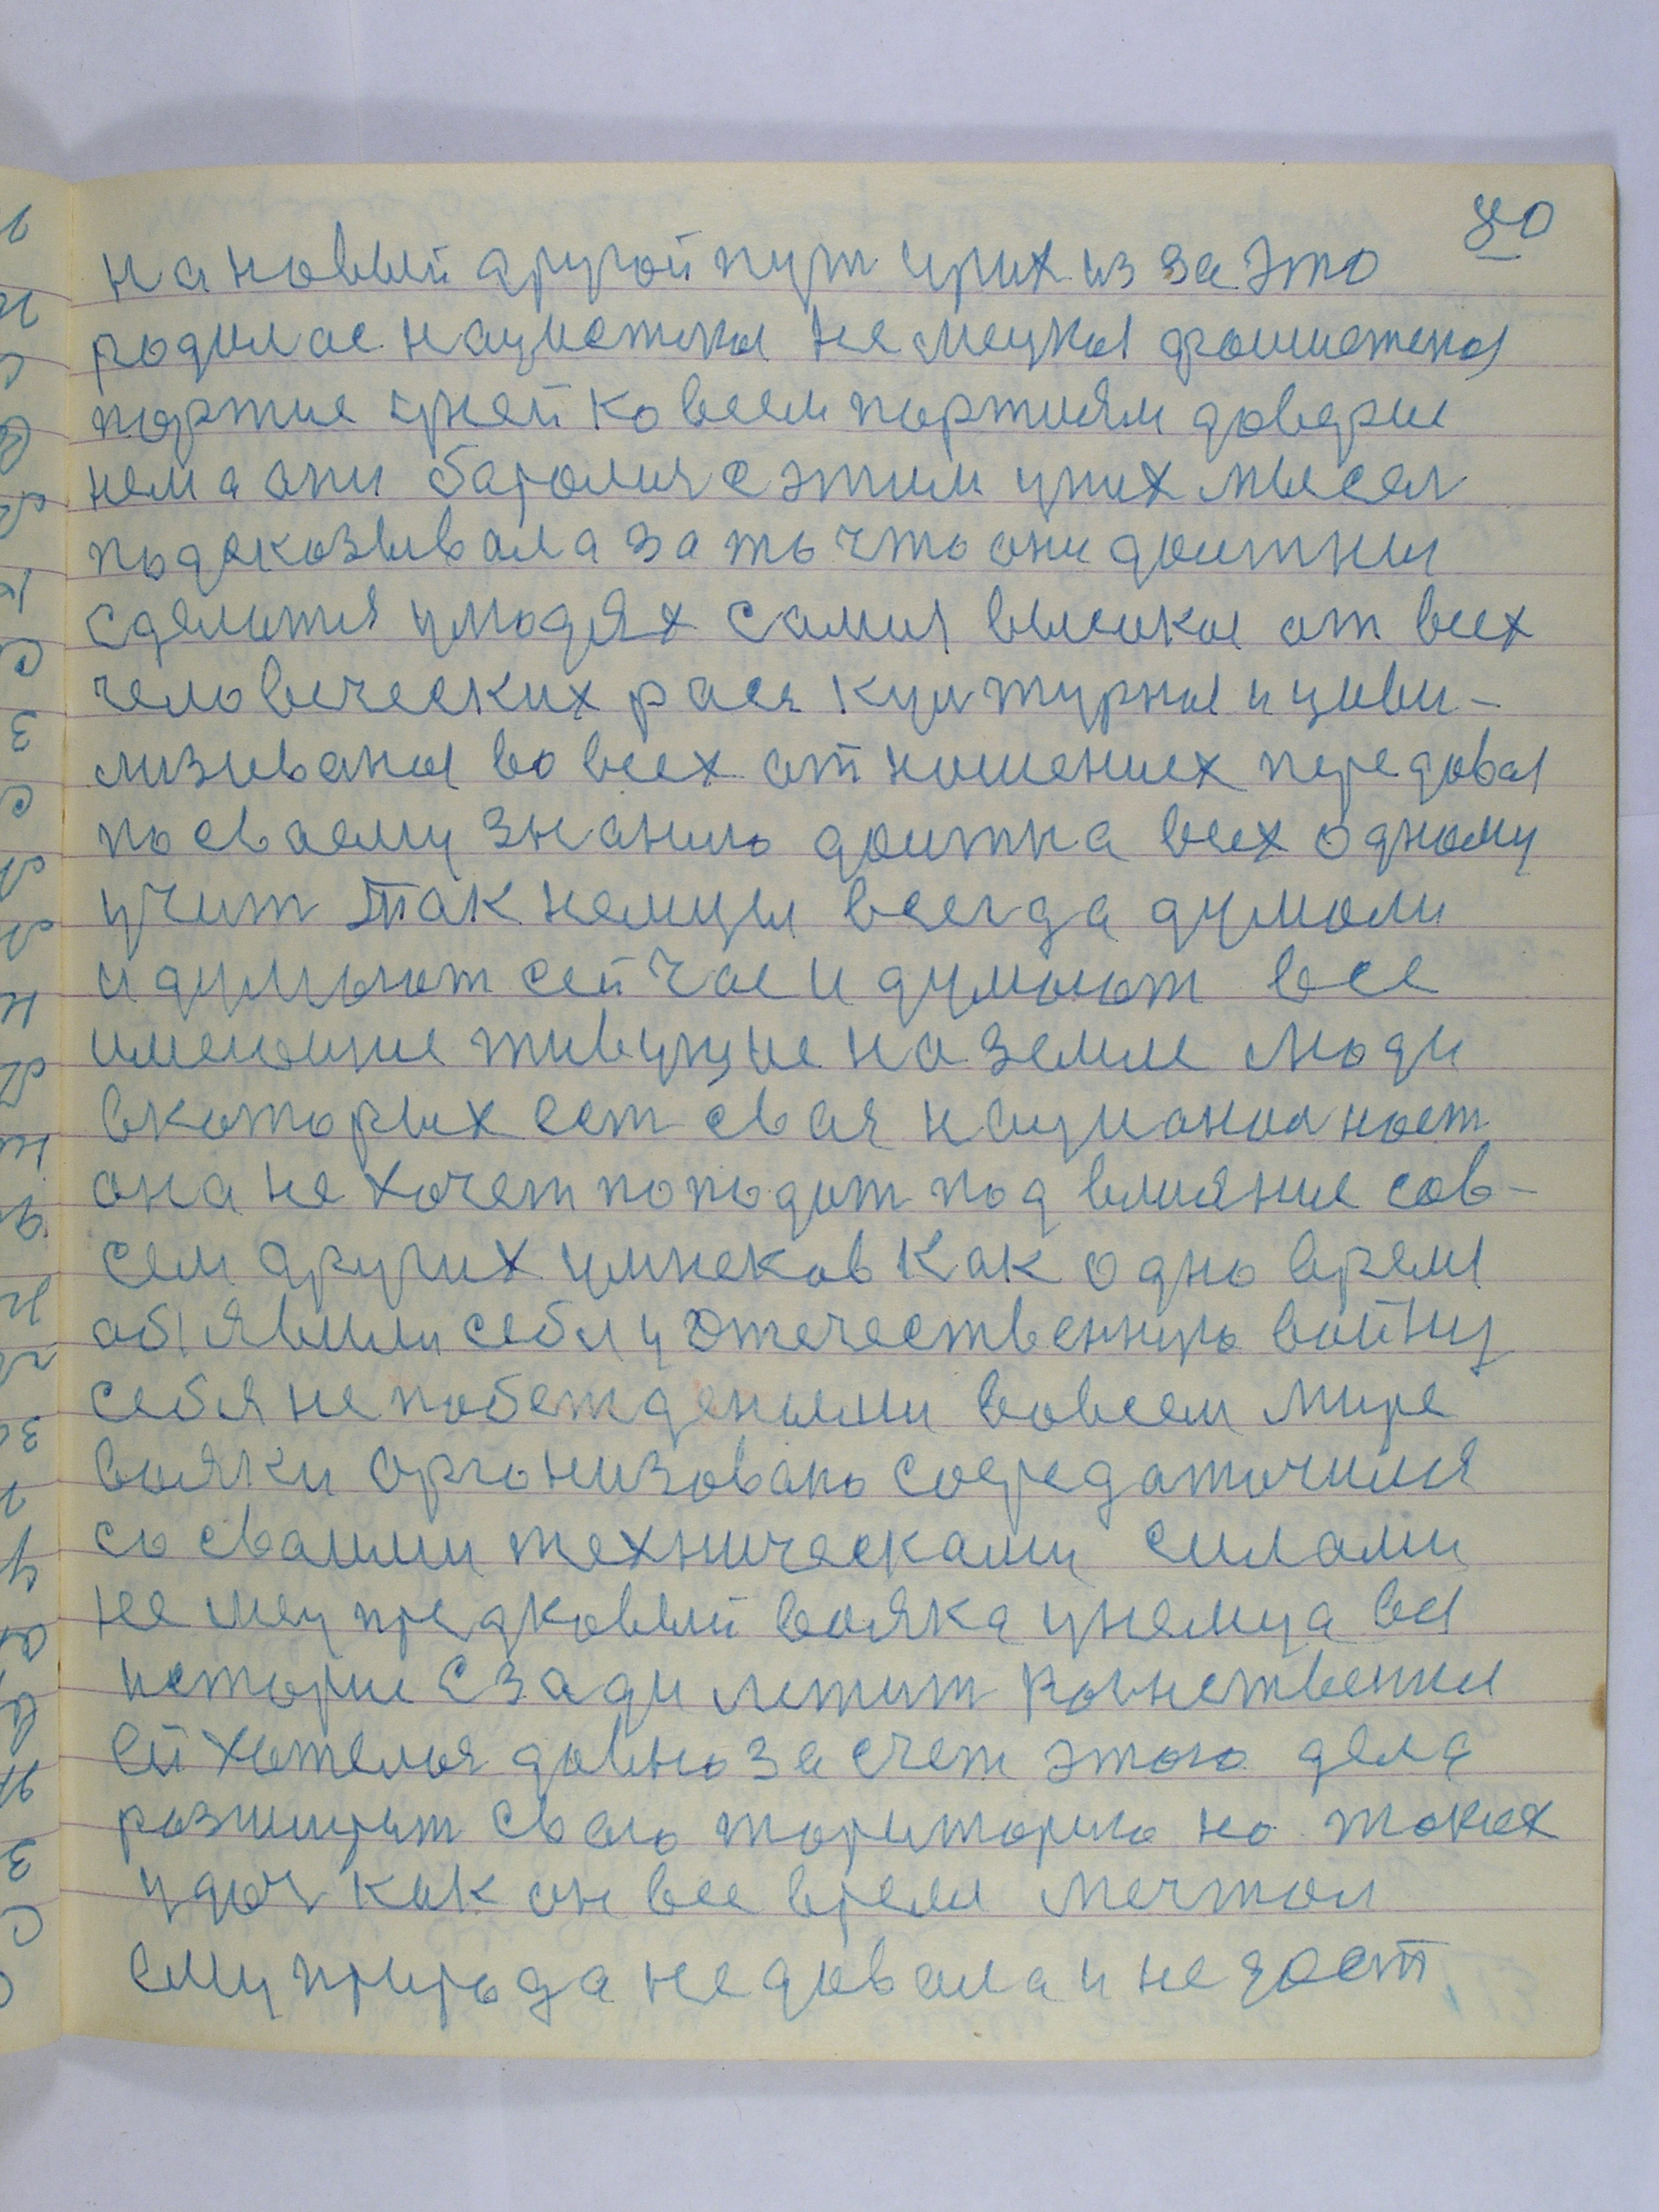 80
на новый другой пут у них из за это
родилас нацистка немецкая фашистская
партие у ней ко всем партиям доверие
нема они баролися с этим у них мысел
подсказывала за то что они должны
сделатся у людях самия высокая от всех
человеческих раса культурная и циви-
лизиваная во всех отношениех передовая
по сваему знанию должна всех одному
учит Так немцы всегда думали
и думают сейчас и думают все
имеющие живущие на земле люди
вкоторых ест свая национал ност
она не хочет пападат под влияние сов-
сем других умнеков Как одно время
обявили себя у Отечественную войну
себя не победжеными вовсем мире
вояки организовано сосредаточился
со сваими техническами силами
немец предковый вояка у немца вся
историе сзади лежит
ей хателся давно за счет этого дела
разширят сваю тариторию но таких
удач как он все время мечтал
ему природа не давала и не даст